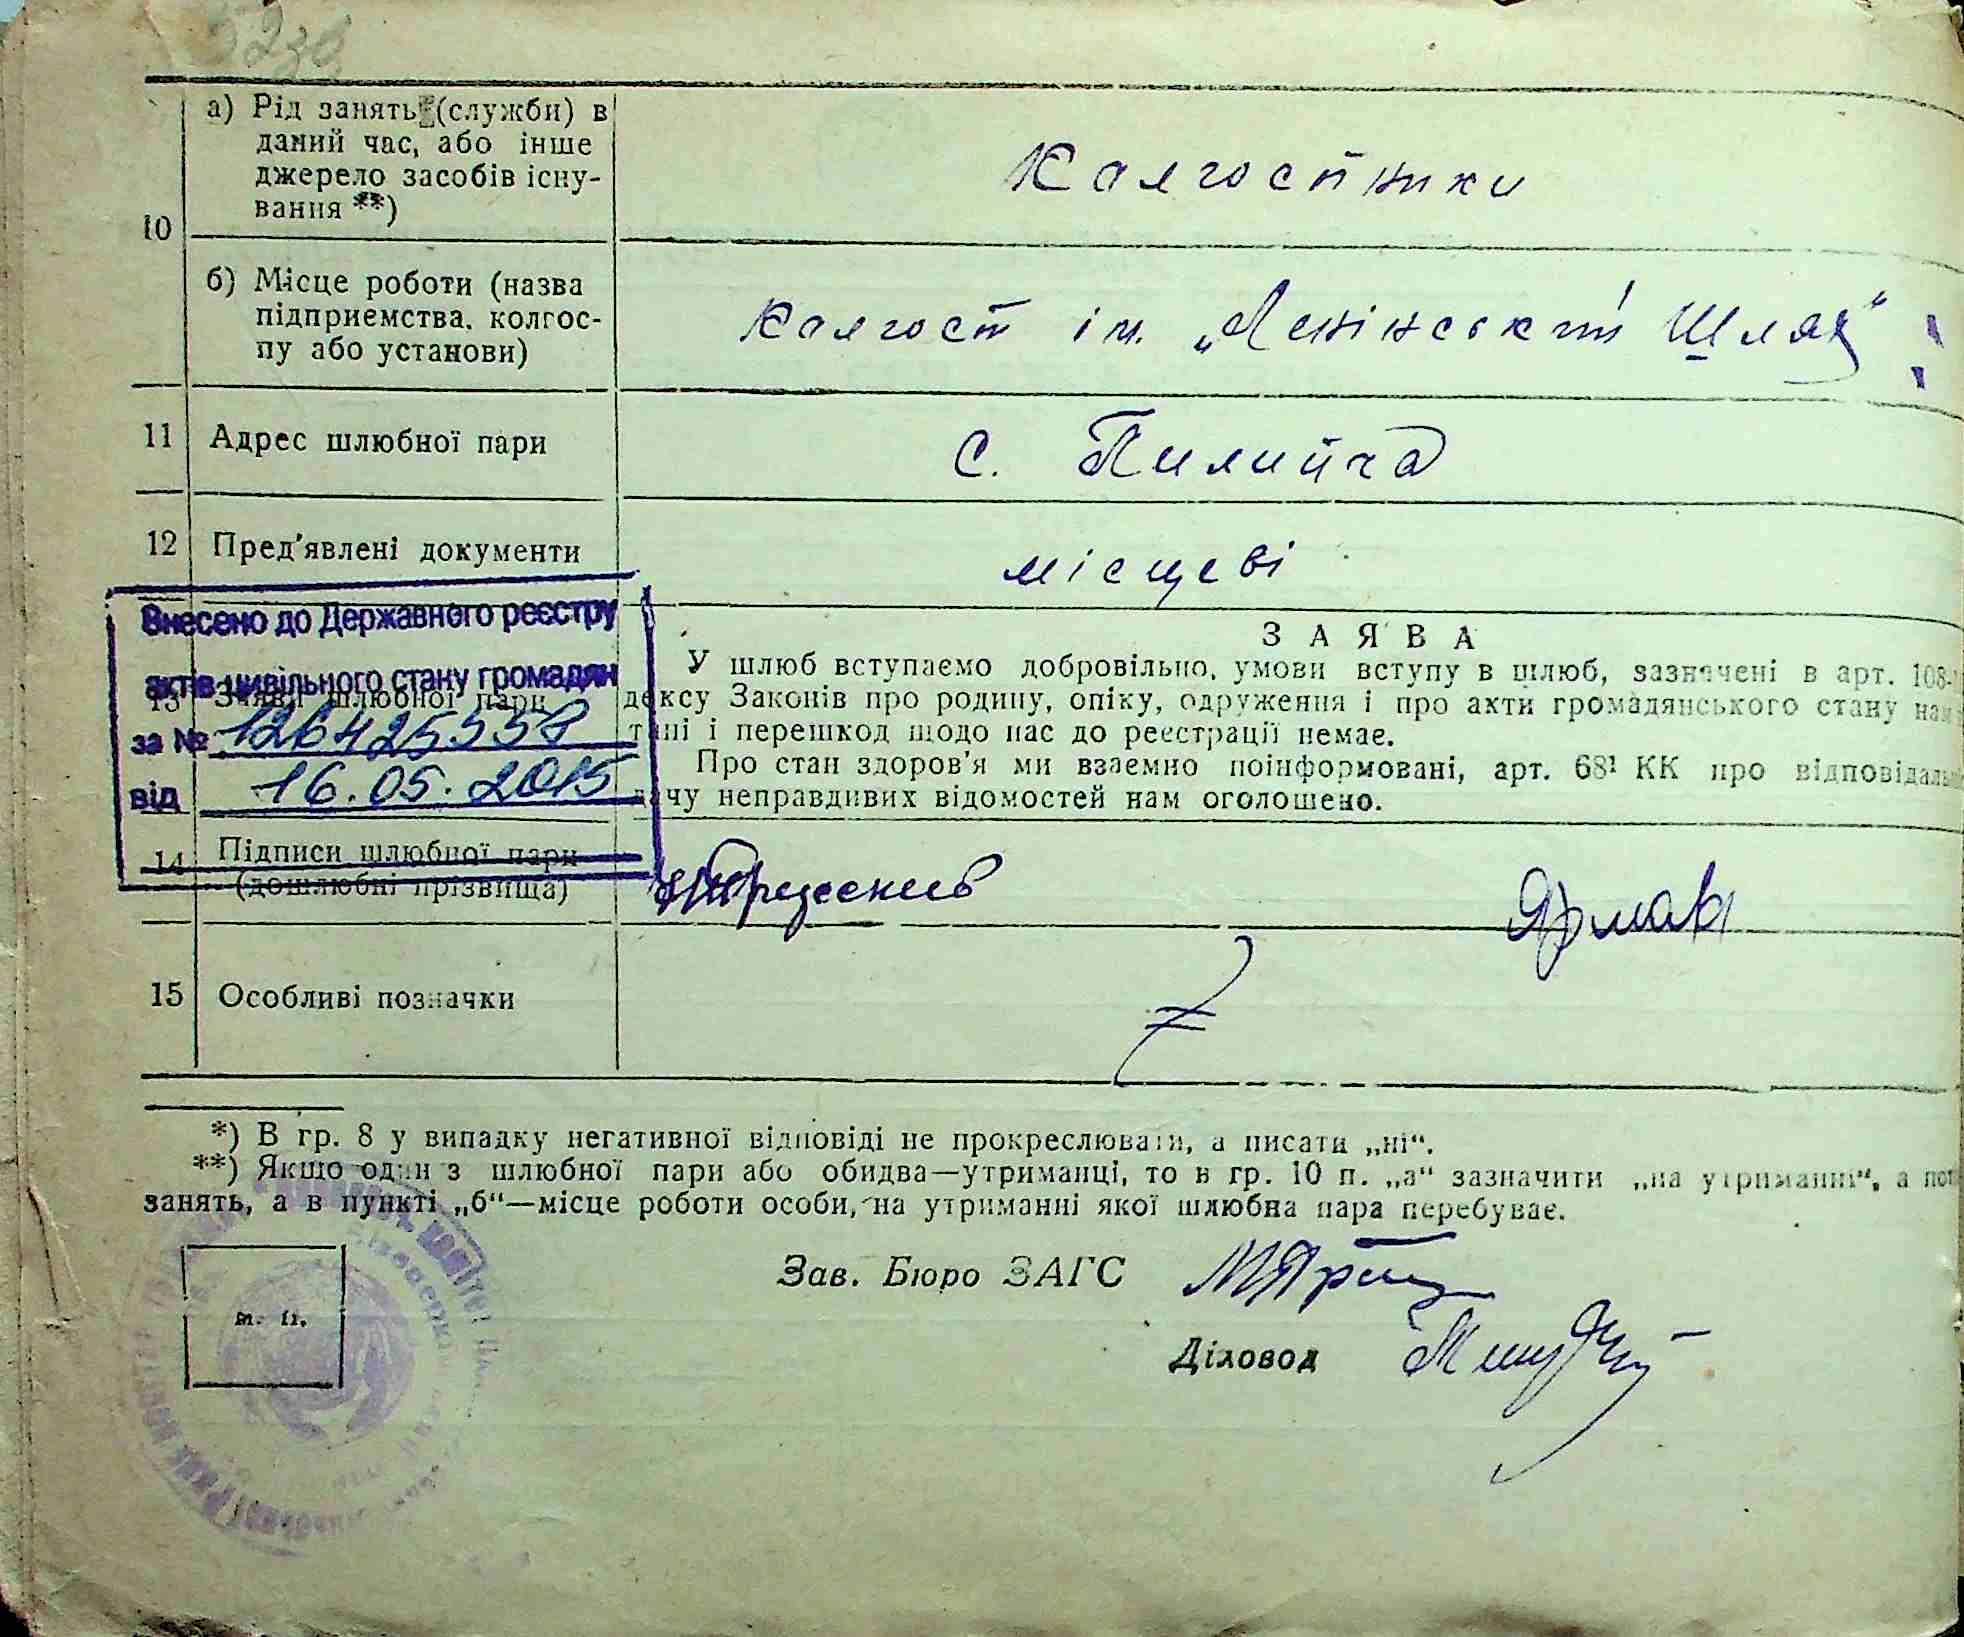 10
а) Рід занять (служби) в
даний час, або інше
джерело засобів існу-
вання **)
Колгоспники
б) Місце роботи (назва
підприємства, колгос-
пу або установи)
Колгосп ім. „Ленінський Шлях"
11 Адрес шлюбної пари
с. Пилипча
12 Пред'явлені документи
місцеві
Внесено до Державного реєстру
актів цивільного стану громадян
за № 126425558
від 16.05.2015
13 Заяви шлюбної пари
ЗАЯВА
У шлюб вступаємо добровільно, умови вступу в шлюб, зазначені в арт. 108-
дексу Законів про родину, опіку, одруження і про акти громадянського стану нам
тані і перешкод щодо нас до реєстрації немає.
Про стан здоров'я ми взаємно поінформовані, арт. 68¹ КК про відповідаль
дачу неправдивих відомостей нам оголошено.
14 Підписи шлюбної пари
(дошлюбні прізвища)
15 Особливі позначки
*) В гр. 8 у випадку негативної відповіді не прокреслювати, а писати „ні“.
**) Якщо один з шлюбної пари або обидва—утриманці, то в гр. 10 п. „а“ зазначити „на утриманні“, а пот
занять, а в пункті „б“—місце роботи особи, на утриманні якої шлюбна пара перебуває.
Зав. Бюро ЗАГС
м. п.
Діловод